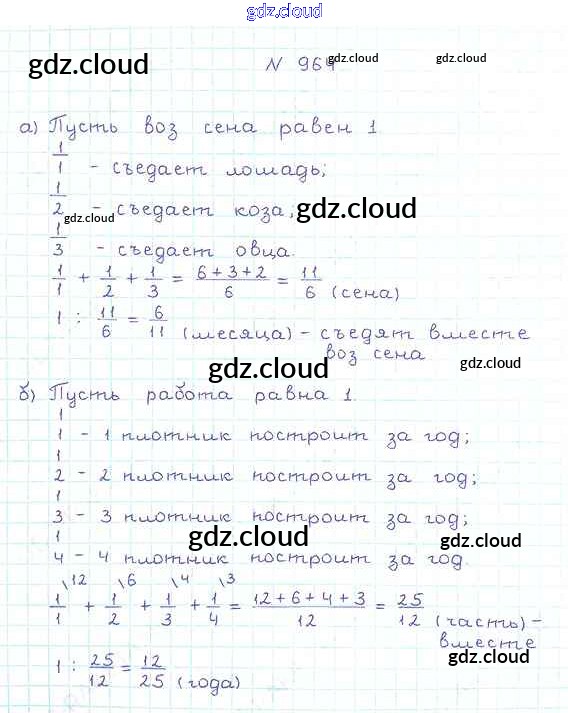 gdz.cloud
gdz.cloud № 964 gdz.cloud gdz.cloud
а) Пусть воз сена равен 1
1/1 - съедает лошадь;
1/2 - съедает коза; gdz.cloud
gdz.cloud
1/3 - съедает овца.
1/1 + 1/2 + 1/3 = (6+3+2)/6 = 11/6 (сена)
1 : 11/6 = 6/11 (месяца) - съедят вместе
воз сена
gdz.cloud gdz.cloud
б) Пусть работа равна 1.
1/1 - 1 плотник построит за год;
1/2 - 2 плотник построит за год;
1/3 - 3 плотник построит за год;
gdz.cloud gdz.cloud
1/4 - 4 плотник построит за год.
\12 \6 \4 \3
1/1 + 1/2 + 1/3 + 1/4 = (12+6+4+3)/12 = 25/12 (часть) -
вместе
gdz.cloud
1 : 25/12 = 12/25 (года)